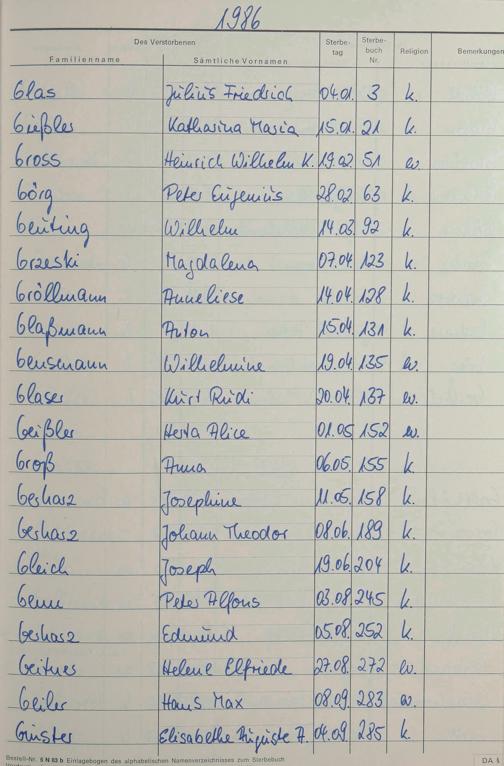 1986
Des Verstorbenen
Familienname Sämtliche Vornamen Sterbe-tag Sterbe-buch Nr. Religion Bemerkungen
Glas Julius Friedrich 04.01. 3 k.
Gießler Katharina Maria 15.01. 21 k.
Gross Heinrich Wilhelm K. 19.02. 51 ev.
Görg Peter Eugenius 28.02. 63 k.
Geuting Wilhelm 14.03. 92 k.
Grzeski Magdalena 07.04. 123 k.
Gröllmann Anneliese 14.04. 128 k.
Glaßmann Anton 15.04. 131 k.
Gensemann Wilhelmine 19.04. 135 ev.
Glaser Kurt Rudi 20.04. 137 ev.
Geißler Herta Alice 01.05. 152 ev.
Groß Anna 06.05. 155 k.
Gerharz Josephine 11.05. 158 k.
Gerharz Johann Theodor 08.06. 189 k.
Gleich Joseph 19.06. 204 k.
Genn Peter Alfons 03.08. 245 k.
Gerharz Edmund 05.08. 252 k.
Helene Elfriede 27.08. 272 ev.
Geiler Hans Max 08.09. 283 ev.
Günster Elisabethe Auguste A. 04.09. 285 k.
Bestell-Nr. 6 N 83 b Einlagebogen des alphabetischen Namenverzeichnisses zum Sterbebuch
DA